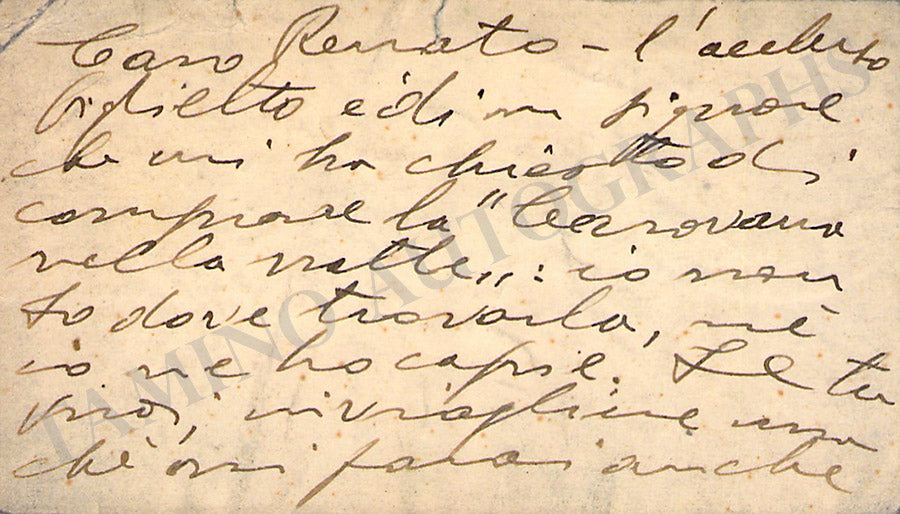 Caro Renato - l'accluso
biglietto è di un signore
che mi ha chiesto di
comprare la "Carovana
nella notte„: io non
so dove trovarla, nè
io ne ho copie. Se tu
vuoi, inviagliene una
chè mi farai anche
TAMINO AUTOGRAPHS